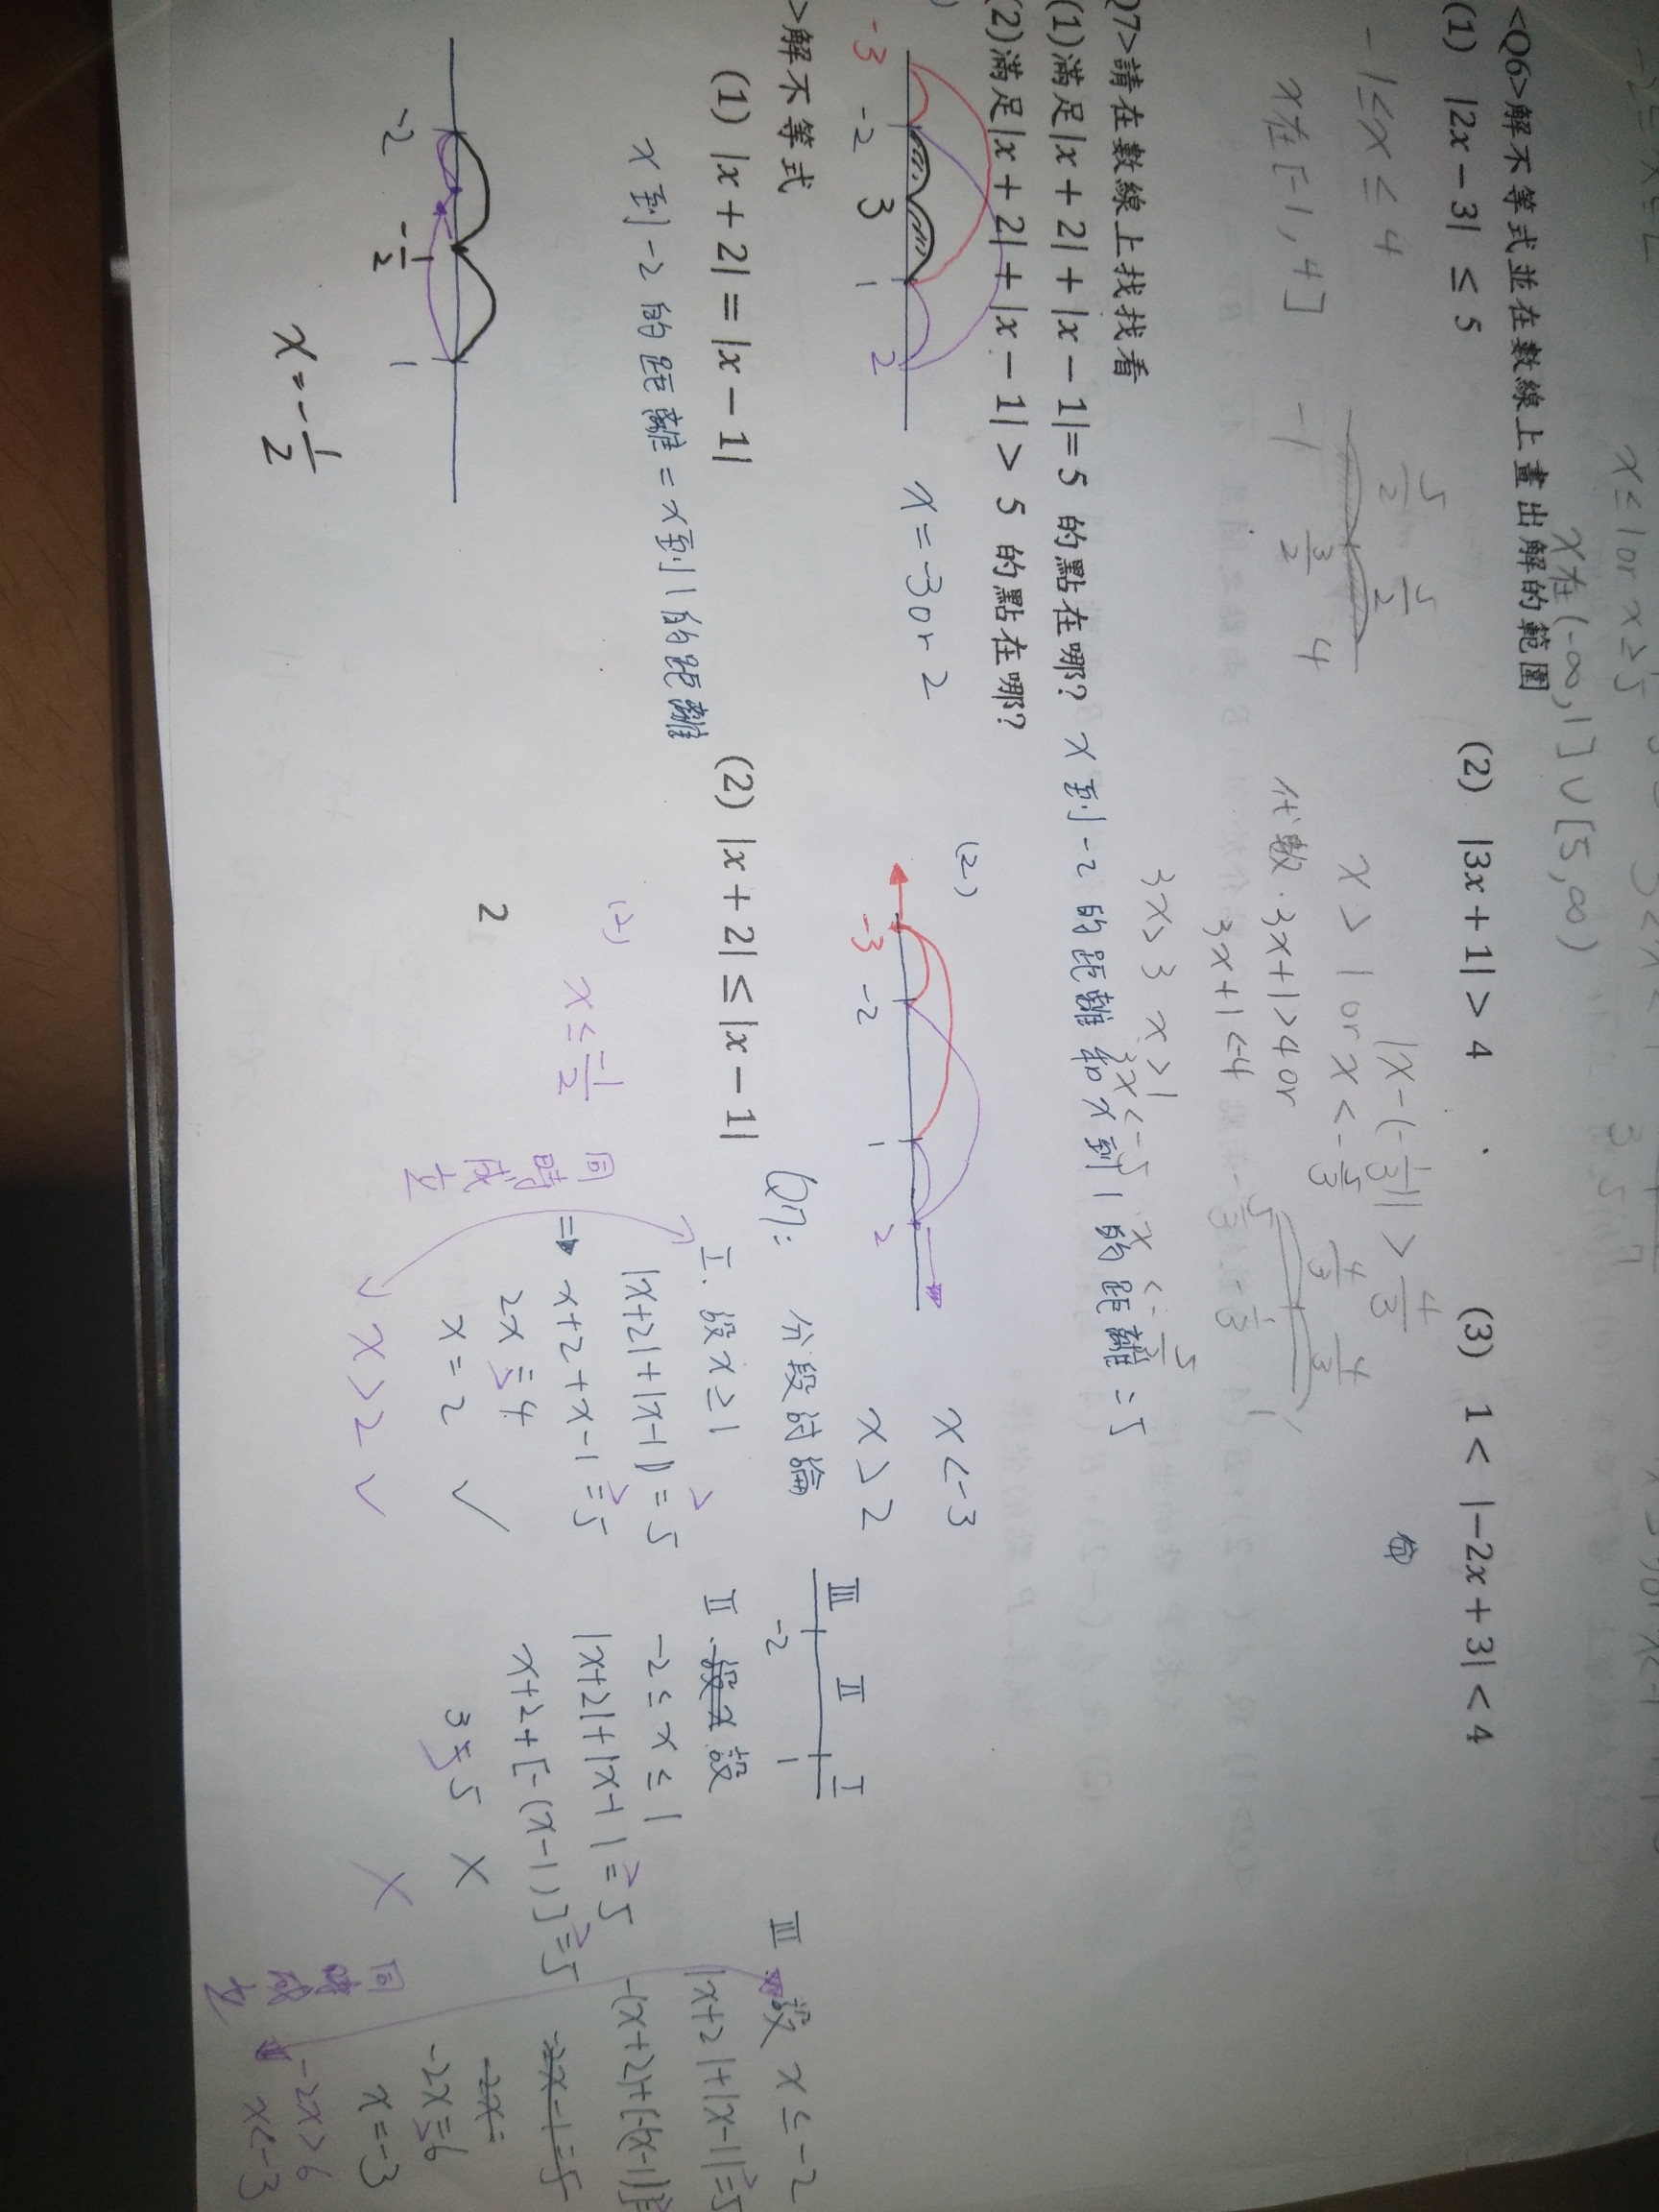 x≤1 or x≥5
x在(-∞,1]∪[5,∞)
<Q6>解不等式並在數線上畫出解的範圍
(1) |2x−3| ≤ 5
(2) |3x+1| > 4
(3) 1 < |−2x+3| < 4
-1≤x≤4
x在[-1,4]
5/2 5/2
-1 3/2 4
|x-(-1/3)| > 4/3
x>1 or x<-5/3
代數.3x+1>4 or
3x+1<-4
3x>3 x>1
3x<-5 x<-5/3
4/3 4/3
-5/3 -1/3 1
Q7>請在數線上找找看
(1)滿足|x+2|+|x−1|=5 的點在哪?
x到-2的距離和x到1的距離=5
(2)滿足|x+2|+|x−1| > 5 的點在哪?
-3 -2 3 1 2
x=-3 or 2
(2)
-3 -2 1 2
x<-3
x>2
>解不等式
(1) |x+2|=|x−1|
(2) |x+2| ≤ |x−1|
x到-2的距離=x到1的距離
-2 -1/2 1
x=-1/2
(2)
x≤-1/2
2
Q7: 分段討論
III II I
-2 1
I. 設x≥1
|x+2|+|x-1|=5 >
⇒ x+2+x-1=5 >
2x=4 >
x=2 ✓
x>2 ✓
同時成立
II. 設x 設
-2≤x≤1
|x+2|+|x-1|=5 >
x+2+[-(x-1)]=5 >
3=5 > X
X
III. 設 x≤-2
|x+2|+|x-1|=5 >
-2x-1=5
-2x=
-2x=6 >
x=-3
-2x>6
x<-3
同時成立